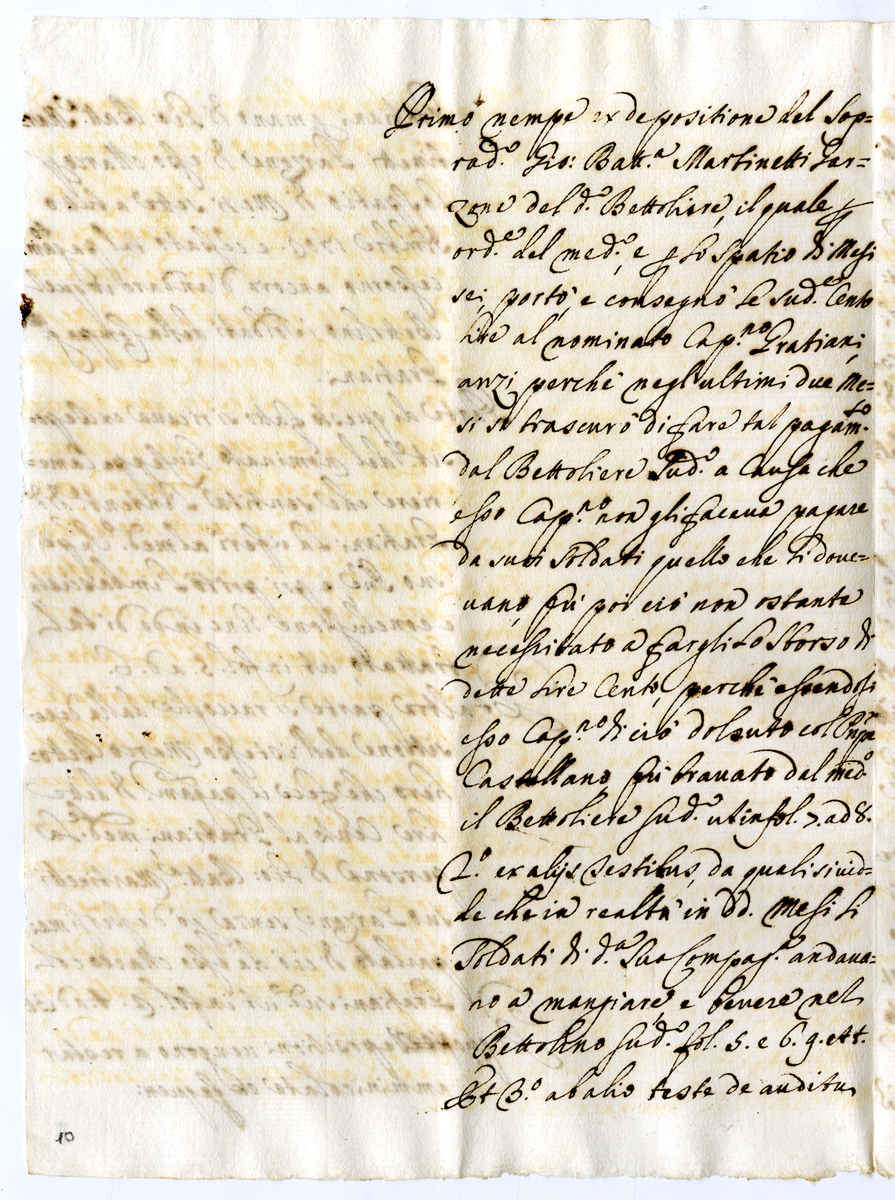 Primo nempe ex depositione del Sop=
rad.º Gio: Batt.ª Martinetti Gar=
zone del d.º Bettoliere, il quale p
ord.e del med.º, e p lo spatio di Mesi
sei, portò, e consegnò le sud.e Cento
lire al nominato Cap.no Gratiani,
anzi perche negl'ultimi due Me=
si si trascurò di fare tal pagam.to
dal Bettoliere Sud.º a Causa che
esso Cap.no non gli faceva pagare
da suoi Soldati quello che li doue=
uano, fù poi ciò non ostante
necessitato a fargli lo sborso di
dette lire Cento, perche essendosi
esso Cap.no di ciò doluto col
Castellano fù brauato dal med.º
il Bettoliere Sud.º ut in fol. 7. ad 8.
2.º ex alijs Testibus, da quali si ved=
de che in realtà in dd. Mesi li
Soldati di d.ª Sua Compag.ª andaua=
no a mangiare, e beuere nel
Bettolino Sud.º fol. 5. e 6. 9. ett.
Et 3.º ab alio teste de auditu,
10